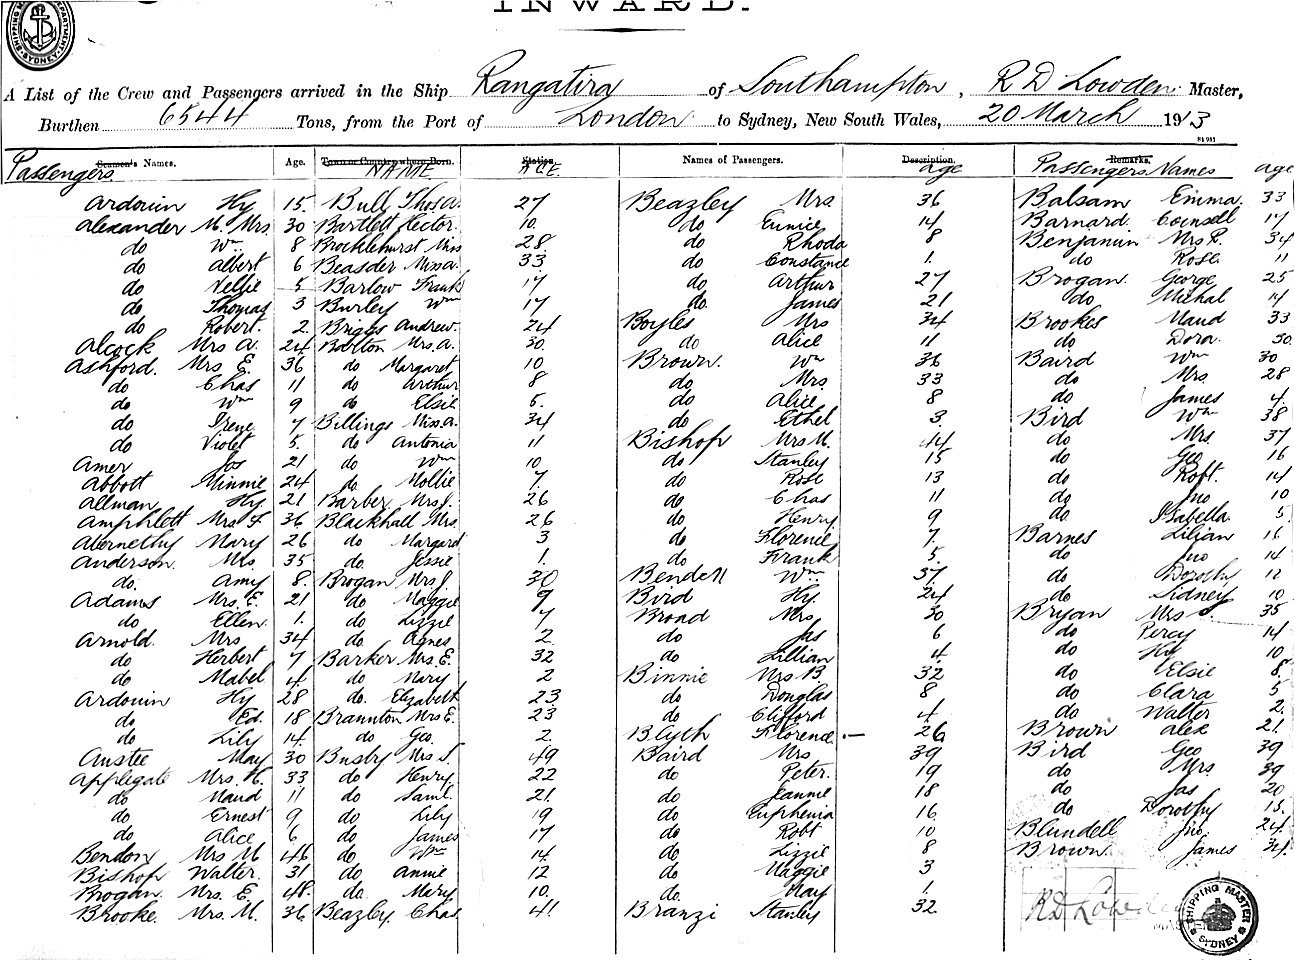 INWARD.
SHIPPING MASTER'S DEPARTMENT SYDNEY
A List of the Crew and Passengers arrived in the Ship Rangatira of Southampton, R D Lowden Master,
Burthen 6544 Tons, from the Port of London to Sydney, New South Wales, 20 March 1913
Seamen's Names. Age. Town or Country where Born. Station. Names of Passengers. Description. Remarks.
Passengers NAME AGE age Passengers Names age
Ardouin Hy 15. Bull Thos a. 27 Beazley Mrs 36 Balsam Emma. 33
Alexander M. Mrs 30 Bartlett Hector. 10. do Eunice 14 Barnard 17
do Wm 8 Brocklehurst Miss 28 do Rhoda 8 Benjamin Mrs R. 34
do Albert 6 Beasder Miss a. 33 do Constance 1. do Rose 11
do Nellie 5 Barlow Frank 17 do Arthur 27 Brogan George 25
do Thomas 3 Burley Wm 17 do. James 21 do Michal 14
do Robert. 2. Briggs Andrew. 24 Boyles Mrs 34 Brookes Maud 33
Alcock Mrs A. 24 Bolton Mrs. A. 30. do Alice 11 do Dora 30
Ashford. Mrs E. 36 do Margaret 10 Brown. Wm 36 Baird Wm 30
do Chas 11 do Arthur 8 do Mrs 33 do Mrs. 28
do Wm 9 do Elsie 5. do Alice 8 do James 4.
do Irene 7 Billings Miss. A. 34 do Ethel 3. Bird Wm 38
do Violet 5. do Antonia 11 Bishop Mrs M. 44 do Mrs 37
Amer Jos 21 do Wm 10. do Stanley 15 do Geo 16
Abbott Minnie 24 do. Mollie 7. do Rose 13 do Robt. 14
Allman Hy. 21 Barber Mrs J. 26 do Chas 11 do Jno 10
Amphlett Mrs F 36 Blackhall Mrs. 26 do Henry 9 do Isabella 5.
Abernethy Mary 26 do Margaret 3 do Florence 7. Barnes Lilian 16
Anderson. Mrs. 35 do. Jessie 1. do Frank 5. do Jno 14
do. Amy 8. Brogan Mrs J. 30 Bendell Wm. 37 do Dorothy 12
Adams Mrs. E. 21 do Maggie 9 Bird Hy. 24 do Sidney 10
do Ellen. 1. do Lizzie 7 Broad Mrs. 30 Bryan Mrs J. 35
Arnold. Mrs 34 do Agnes 2. do Jas 6 do Percy 14
do Herbert 7 Barker Mrs. E. 32 do Lillian 4 do Hy 10
do Mabel 4 do Mary 2 Binnie Mrs B. 32 do Elsie 8.
Ardouin Hy 28 do. Elizabeth 23 do Douglas 8 do Clara 5
do Ed. 18 Braunton Mrs E. 23 do Clifford 4. do Walter 2.
do Lily 14. do Geo. 2. Blyth Florence 26 Brown Alex 21.
Anstee May 30 Busby Mrs S. 49 Baird Mrs 39 Bird Geo 39
Applegate Mrs. H. 33 do Henry. 22 do Peter. 19 do Mrs 39
do Maud 11 do Saml. 21. do Jeannie 18 do Jas 20
do Ernest 9 do Lily 19 do Euphemia 16. do Dorothy 13.
do Alice 6 do James 17 do Robt 10 Blundell Jno. 24.
Bendon Mrs M 46 do Wm 14. do Lizzie 8 Brown James 34.
Bishop Walter. 31 do Annie 12 do Maggie 3
Brogan Mrs. E. 48. do. Mary 10. do. May 1.
Brooke. Mrs. M. 36. Beazley Chas 41 Branzi Stanley 32.
RD Lowden
MASTER
SHIPPING MASTER SYDNEY